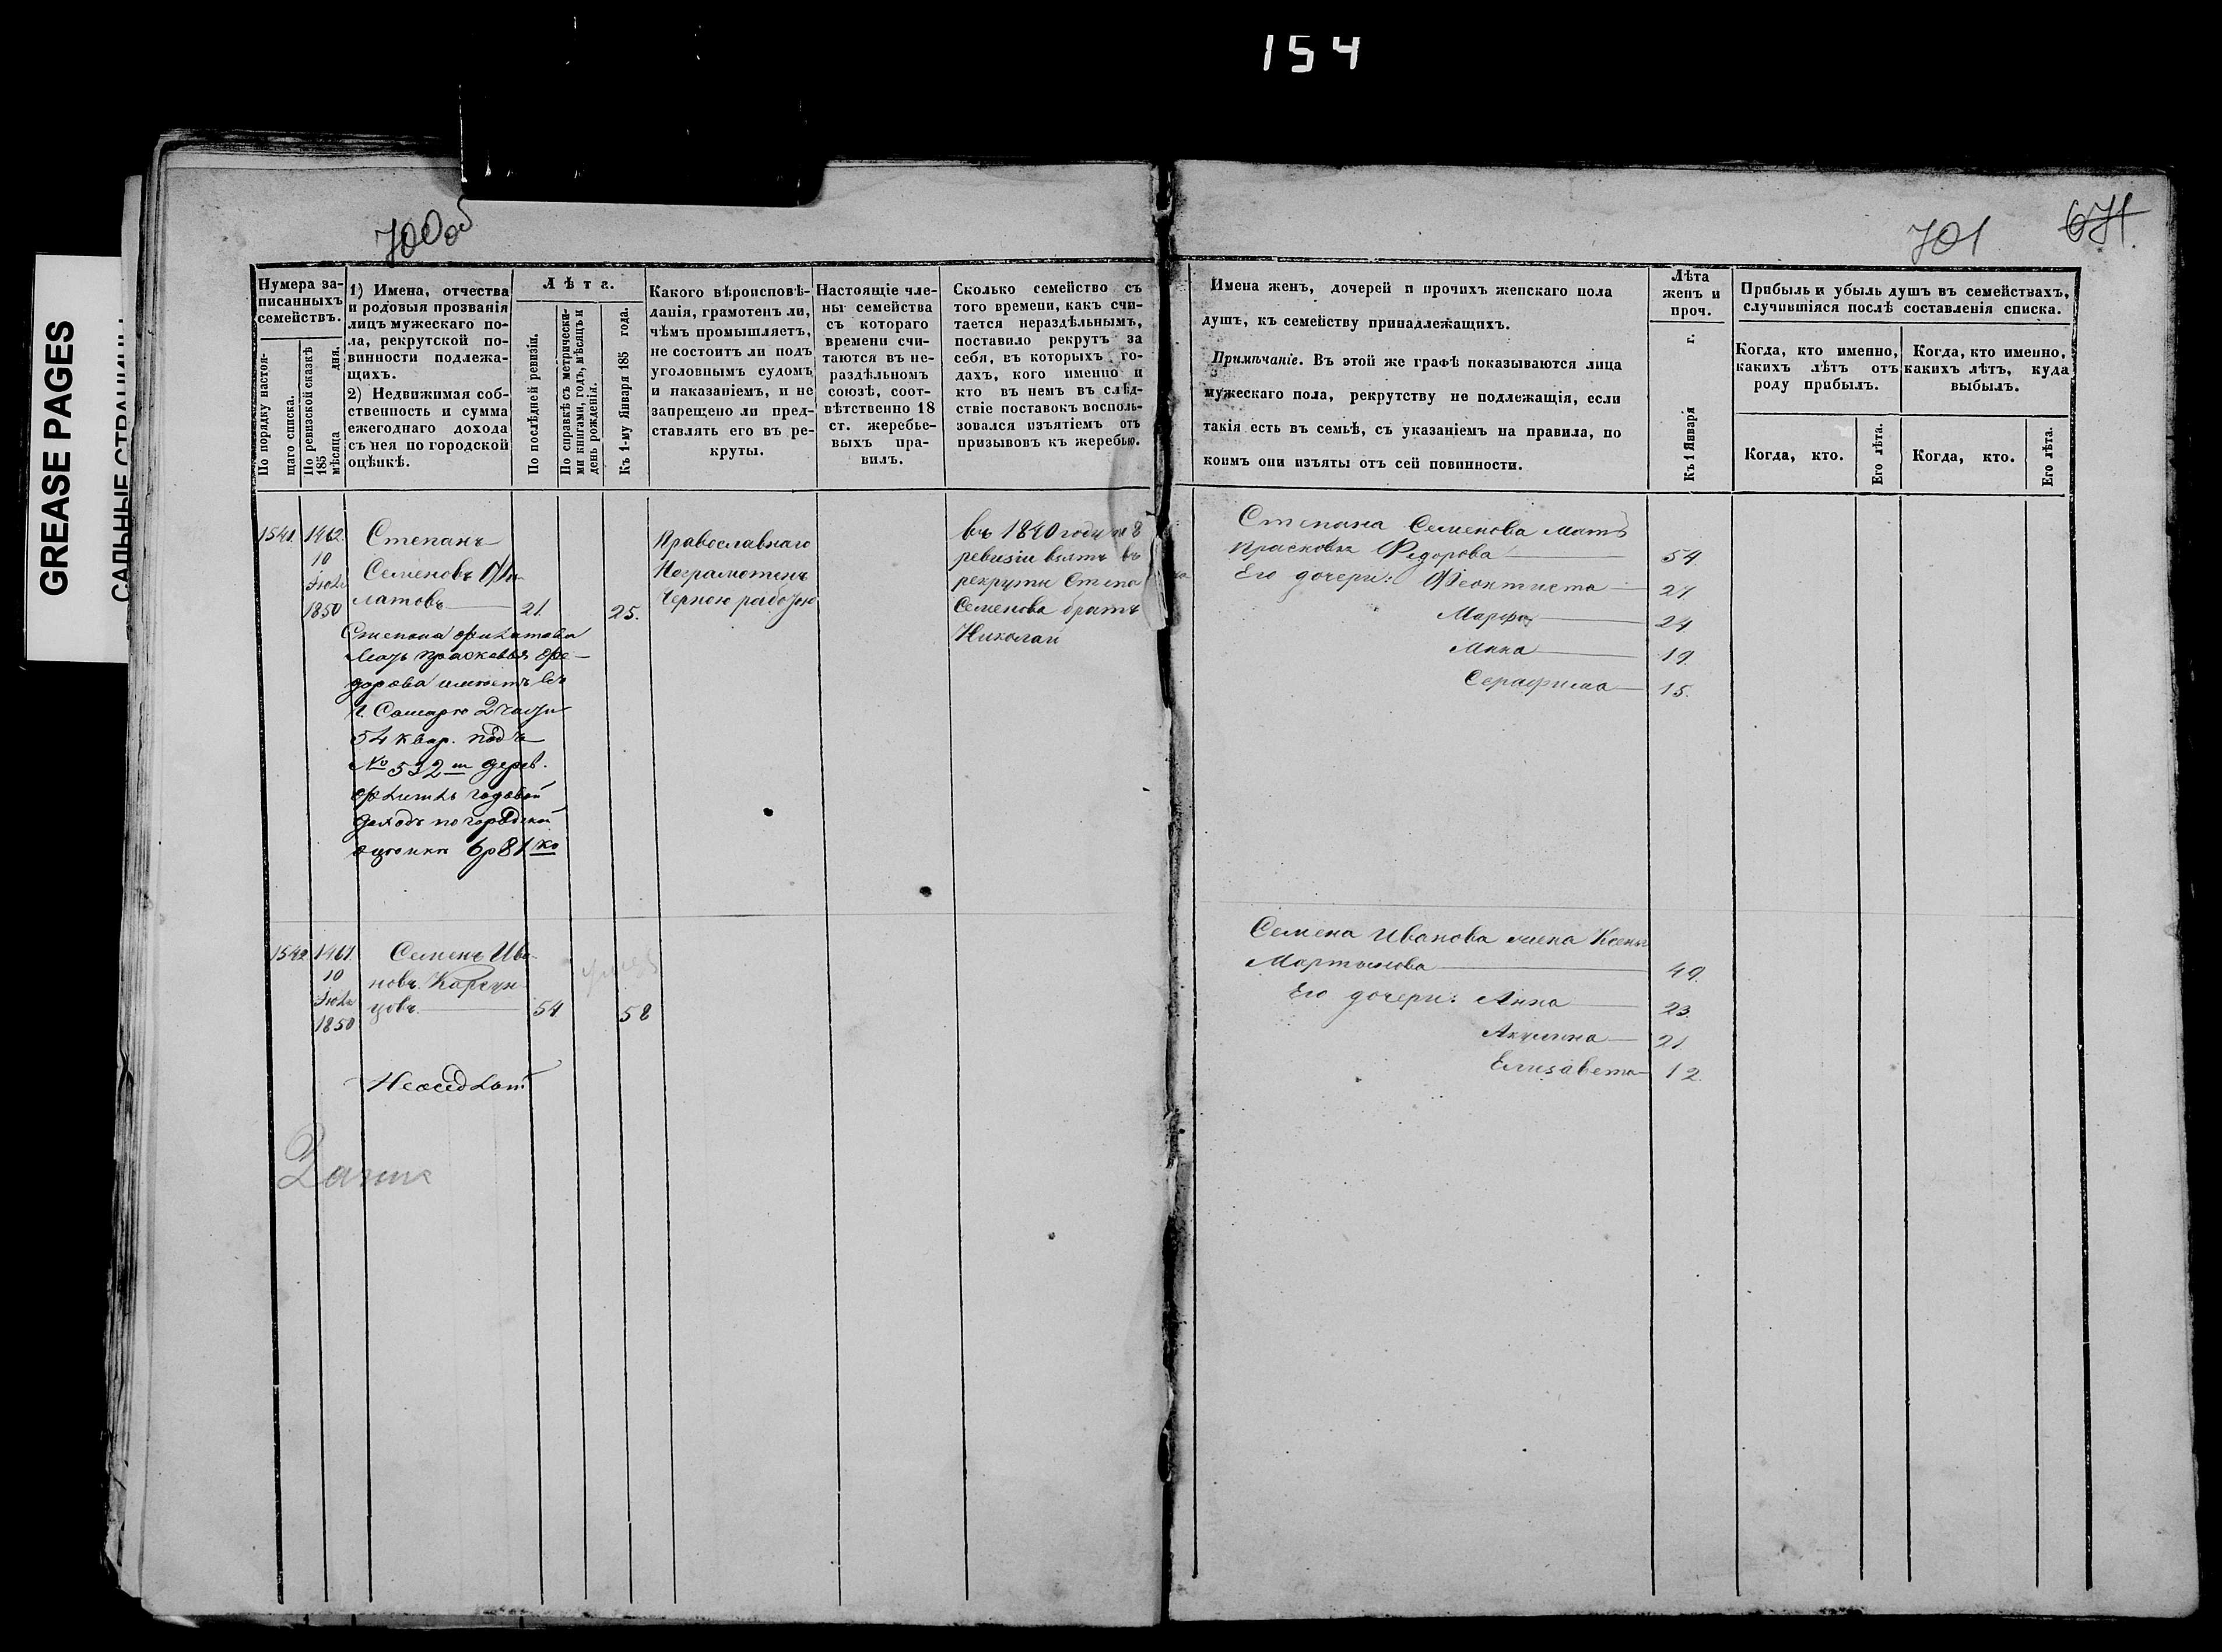 154
GREASE PAGES
САЛЬНЫЕ СТРАНИЦЫ
700 об
701
671.
Нумера записанныхъ семействъ.
По порядку настоящаго списка.
По ревизской сказкѣ 185 мѣсяца дня.
1) Имена, отчества
и родовыя прозванія
лицъ мужескаго по-
ла, рекрутской по-
винности подлежа-
щихъ.
2) Недвижимая соб-
ственность и сумма
ежегоднаго дохода
съ нея по городской
оцѣнкѣ.
Лѣта.
По послѣдней ревизіи.
По справкѣ съ метрически-
ми книгами, годъ, мѣсяцъ и
день рожденія.
Къ 1-му Января 185 года.
Какого вѣроисповѣ-
данія, грамотенъ ли,
чѣмъ промышляетъ,
не состоитъ ли подъ
уголовнымъ судомъ
и наказаніемъ, и не
запрещено ли пред-
ставлять его въ ре-
круты.
Настоящіе чле-
ны семейства
съ котораго
времени счи-
таются въ не-
раздѣльномъ
союзѣ, соот-
вѣтственно 18
ст. жеребье-
выхъ пра-
вилъ.
Сколько семейство съ
того времени, какъ счи-
тается нераздѣльнымъ,
поставило рекрутъ за
себя, въ которыхъ го-
дахъ, кого именно и
кто въ немъ въ слѣд-
ствіе поставокъ восполь-
зовался изъятіемъ отъ
призывовъ къ жеребью.
Имена женъ, дочерей и прочихъ женскаго пола
душъ, къ семейству принадлежащихъ.
Примѣчаніе. Въ этой же графѣ показываются лица
мужескаго пола, рекрутству не подлежащія, если
такія есть въ семьѣ, съ указаніемъ на правила, по
коимъ они изъяты отъ сей повинности.
Лѣта
женъ и
проч.
Къ 1 Января г.
Прибыль и убыль душъ въ семействахъ,
случившіяся послѣ составленія списка.
Когда, кто именно,
какихъ лѣтъ отъ
роду прибылъ.
Когда, кто именно,
какихъ лѣтъ, куда
выбылъ.
Когда, кто.
Его лѣта.
Когда, кто.
Его лѣта.
1541.
1462.
10
Іюля
1850
Степанъ
Семеновъ Фи-
латовъ
21.
25.
Степана Филатова
мать Прасковья Фе-
дорова имѣетъ въ
г. Самаре 2 части
54 квар. подъ
№ 532 м дерев.
флигиль годовой
доходъ по городской
оцѣнки 6 р 81 ко
Православнаго
Неграмотенъ
Черною работою
въ 1840 году по 8
ревизіи взятъ въ
рекруты Степа
Семенова братъ
Николай
Степана Семенова мать
Прасковья Федорова 54.
Его дочери: Феоктиста 27
Марфа 24
Анна 19.
Серафима 15.
1542.
1461
10
Іюля
1850
Семенъ Ива-
новъ Карсун-
цовъ
54
58
Неоседлой
Семена Иванова жена Ксенья
Мартынова 49.
Его дочери: Анна 23.
Акулина 21
Елизавета 12.